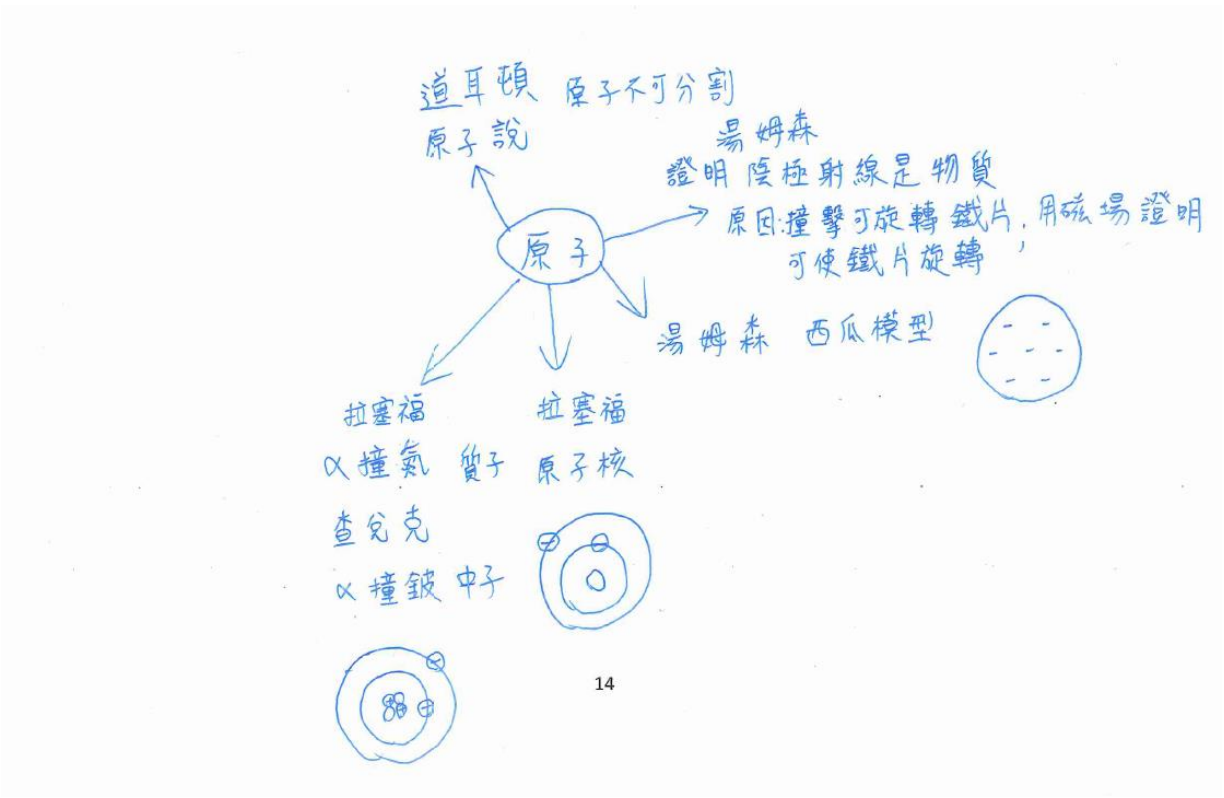 道耳頓 原子不可分割
原子說
湯姆森
證明陰極射線是物質
原因:撞擊可旋轉鐵片,用磁場證明
可使鐵片旋轉,
原子
湯姆森 西瓜模型
拉塞福
α撞氮 質子
查兌克
α撞鈹 中子
拉塞福
原子核
14